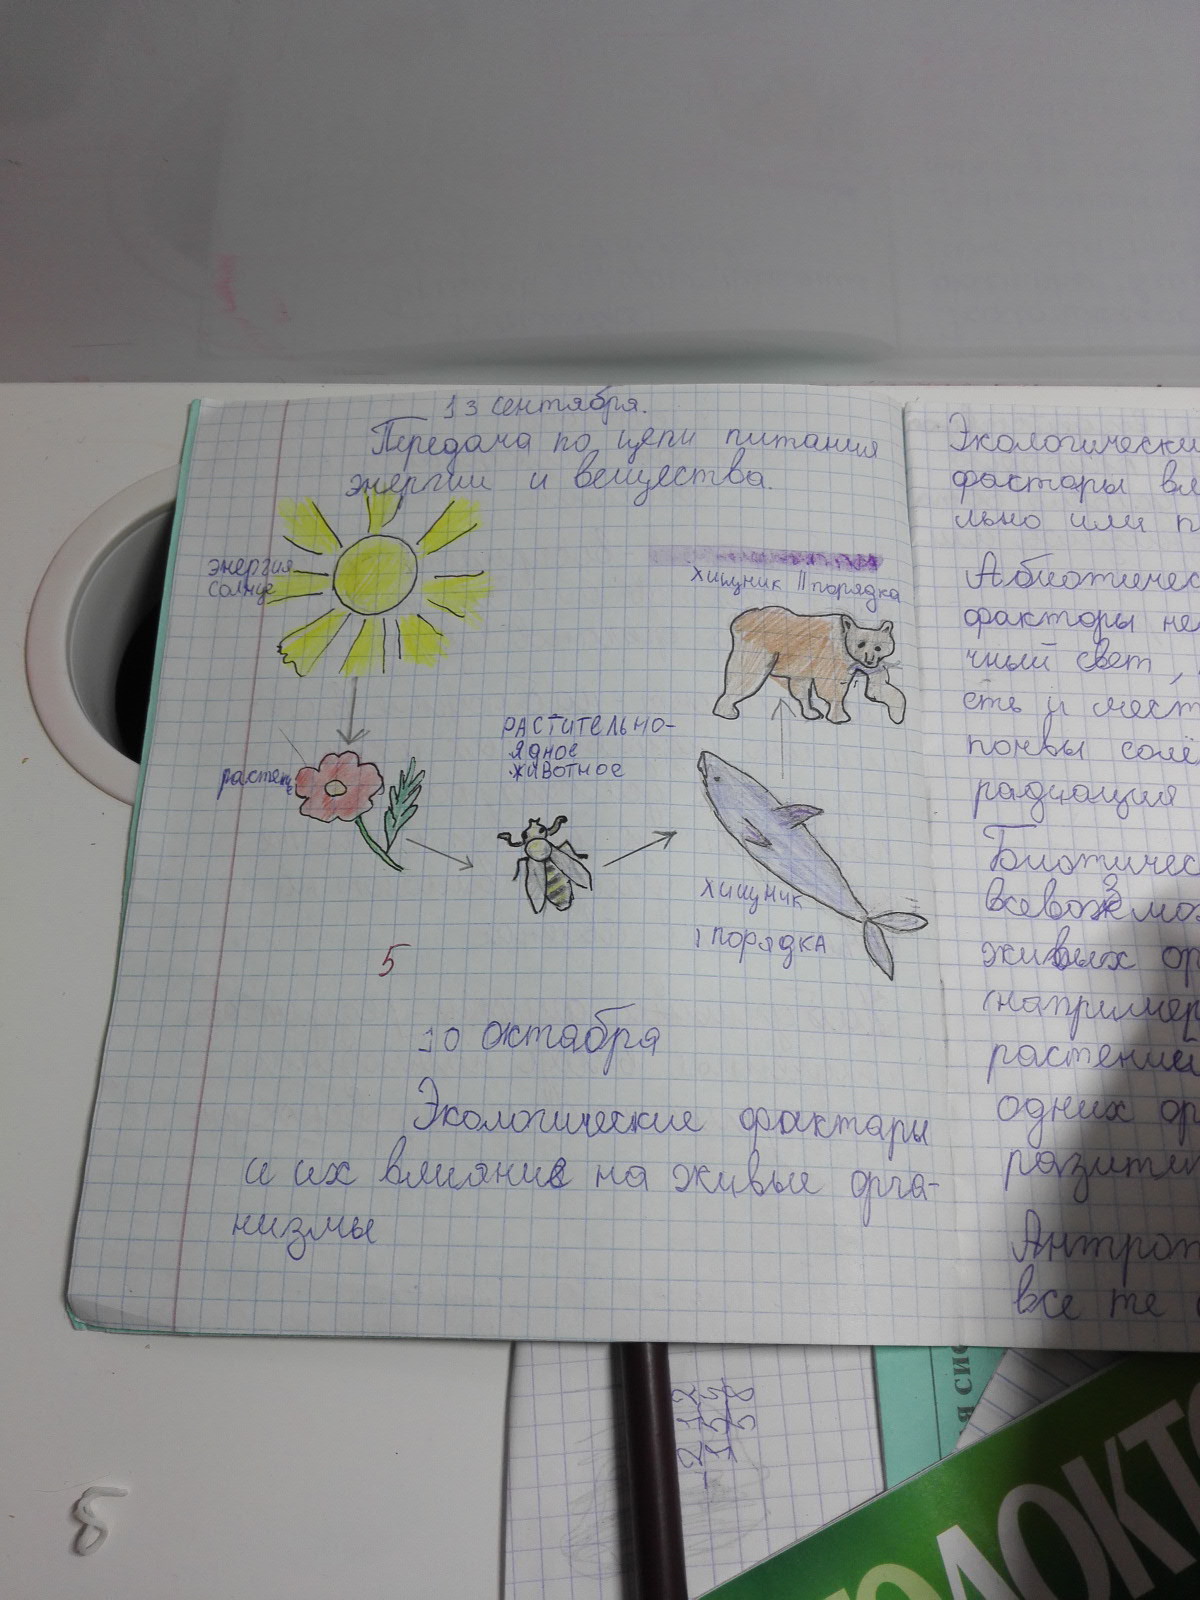 13 сентября.
Передача по цепи питания
энергии и вещества.
энергия
солнце
хищник II порядка
РАСТИТЕЛЬНО-
ЯДНОЕ
ЖИВОТНОЕ
хищник
I ПОРЯДКА
5
10 октабря
Экологические фактары
и их влияние на живые орга-
низмы
Экологически
фактары вл
льно или п
Абиотичес
факторы не
чный свет,
сть и мест
почвы солё
радиация
Биотичес
всевозмо
живых ор
(например
растений
одних ор
разити
Антроп
все те
212
154
58
я сис